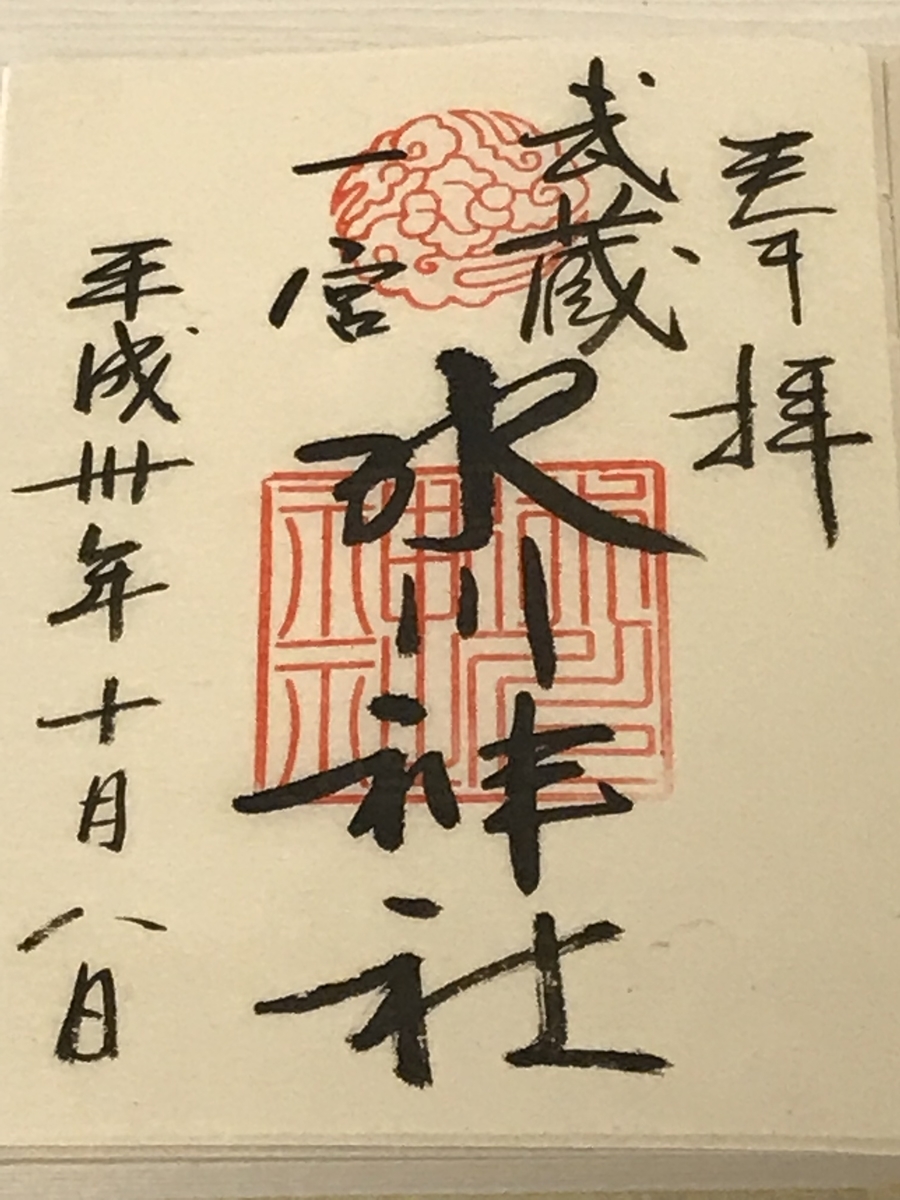 奉拝
武蔵
一宮
氷川神社
平成卅年十月八日
氷川神社